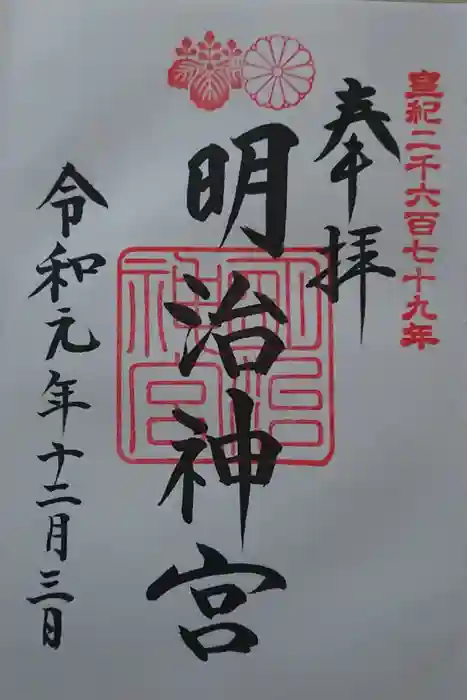 皇紀二千六百七十九年
奉拝
明治神宮
明治神宮
令和元年十二月三日